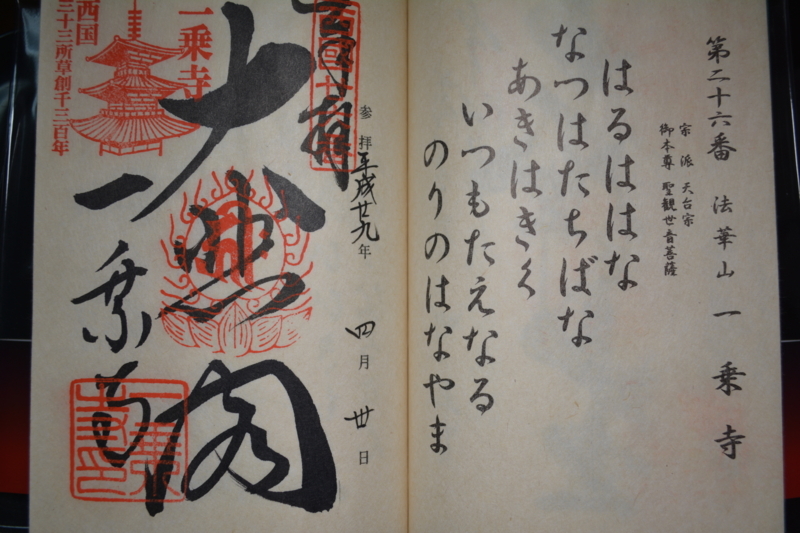 第二十六番 法華山 一乗寺
宗派 天台宗
御本尊 聖観世音菩薩
はるははな
なつはたちばな
あきはきく
いつもたえなる
のりのはなやま
奉拝
参拝平成廿九年 四月 廿日
大悲閣
一乗寺
一乗寺
西国
三十三所草創千三百年